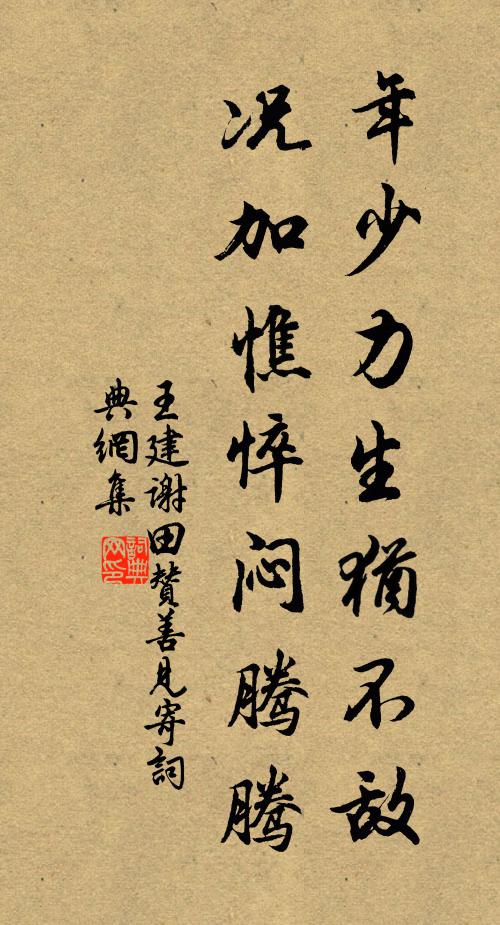 年少力生犹不敌
况加憔悴闷腾腾
王建谢田赞善見寄詞
典網集
詞典
网印